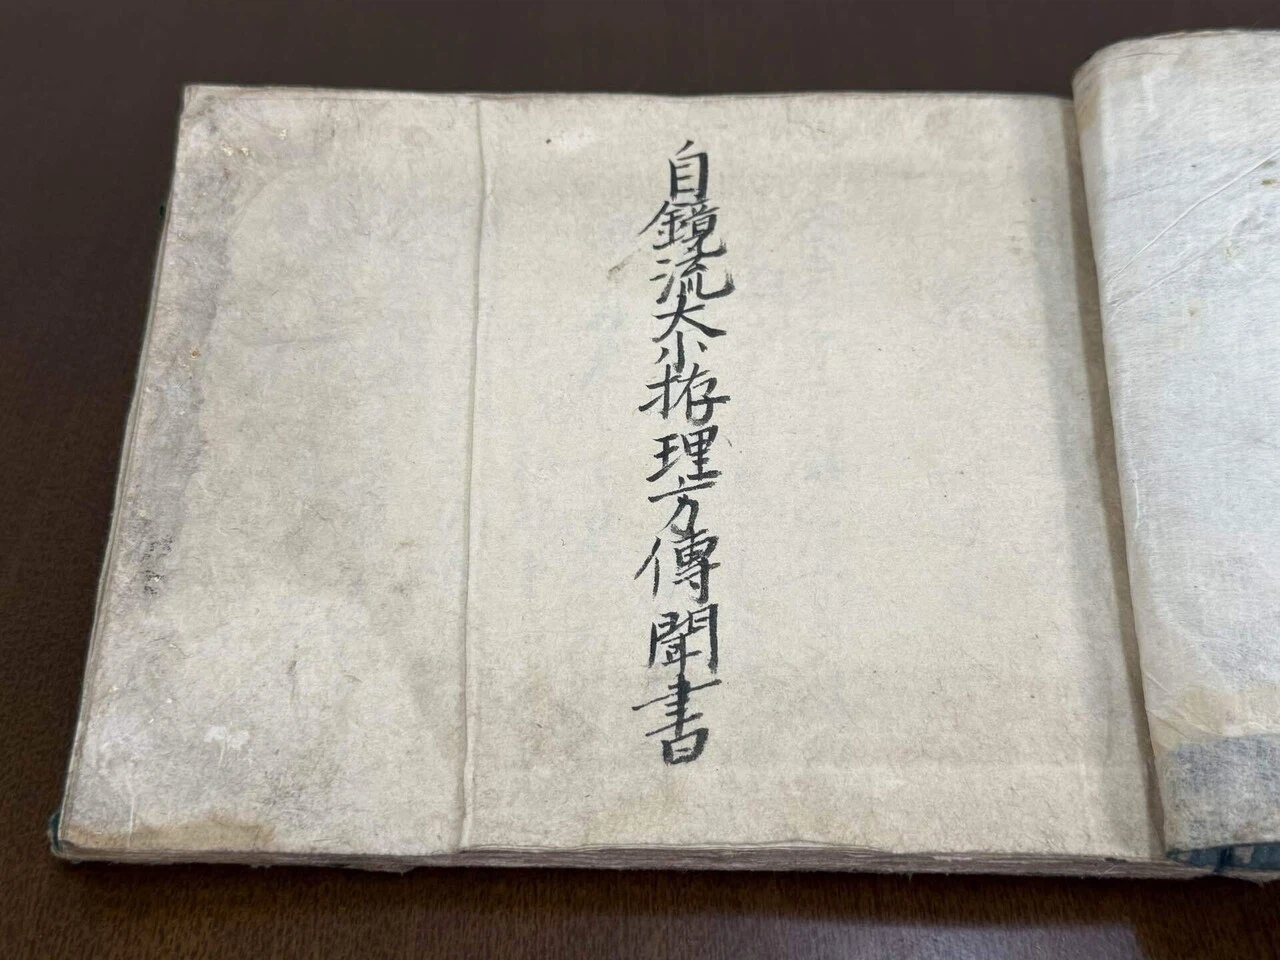 自鏡流大小拵理方傳聞書